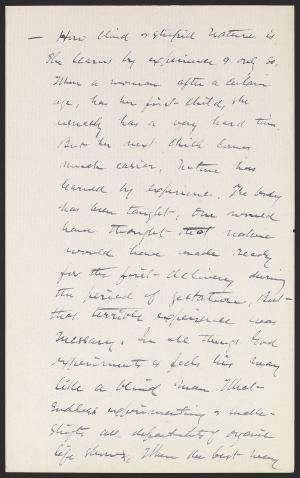 — How blind & stupid Nature is.
She learns by experience & only so.
When a woman after a certain
age, has her first child, she
usually has a very hard time
But her next child comes
much easier. Nature has
learned by experience. The body
has been taught. One would
have thought that nature
would have made ready
for the first delivery during
the period of gestation. But
that terrible experience was
necessary. In all things God
experiments & feels his way
like a blind man. What
endless experimenting & make-
shifts all departments of organic
life show. When the best way